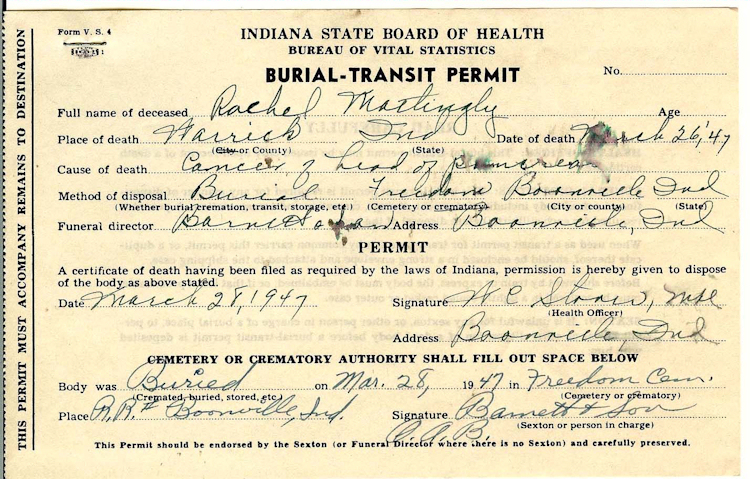 Form V. S. 4
INDIANA STATE BOARD OF HEALTH
BUREAU OF VITAL STATISTICS
BURIAL-TRANSIT PERMIT
No.
Full name of deceased Rachel Mattingly Age
Place of death Warrick Ind Date of death March 26, '47
(City or County) (State)
Cause of death Cancer of head of pancreas
Method of disposal Burial Freedom Boonville Ind
(Whether burial, cremation, transit, storage, etc.) (Cemetery or crematory) (City or county) (State)
Funeral director Barnett & Son Address Boonville, Ind
PERMIT
A certificate of death having been filed as required by the laws of Indiana, permission is hereby given to dispose
of the body as above stated.
Date March 28, 1947 Signature W C Stover,
(Health Officer)
Address Boonville, Ind
CEMETERY OR CREMATORY AUTHORITY SHALL FILL OUT SPACE BELOW
Body was Buried on Mar. 28, 1947 in Freedom Cem.
(Cremated, buried, stored, etc.) (Cemetery or crematory)
Place R.R.# Boonville, Ind. Signature Barnett & Son
(Sexton or person in charge)
C.A.B.
This Permit should be endorsed by the Sexton (or Funeral Director where there is no Sexton) and carefully preserved.
THIS PERMIT MUST ACCOMPANY REMAINS TO DESTINATION